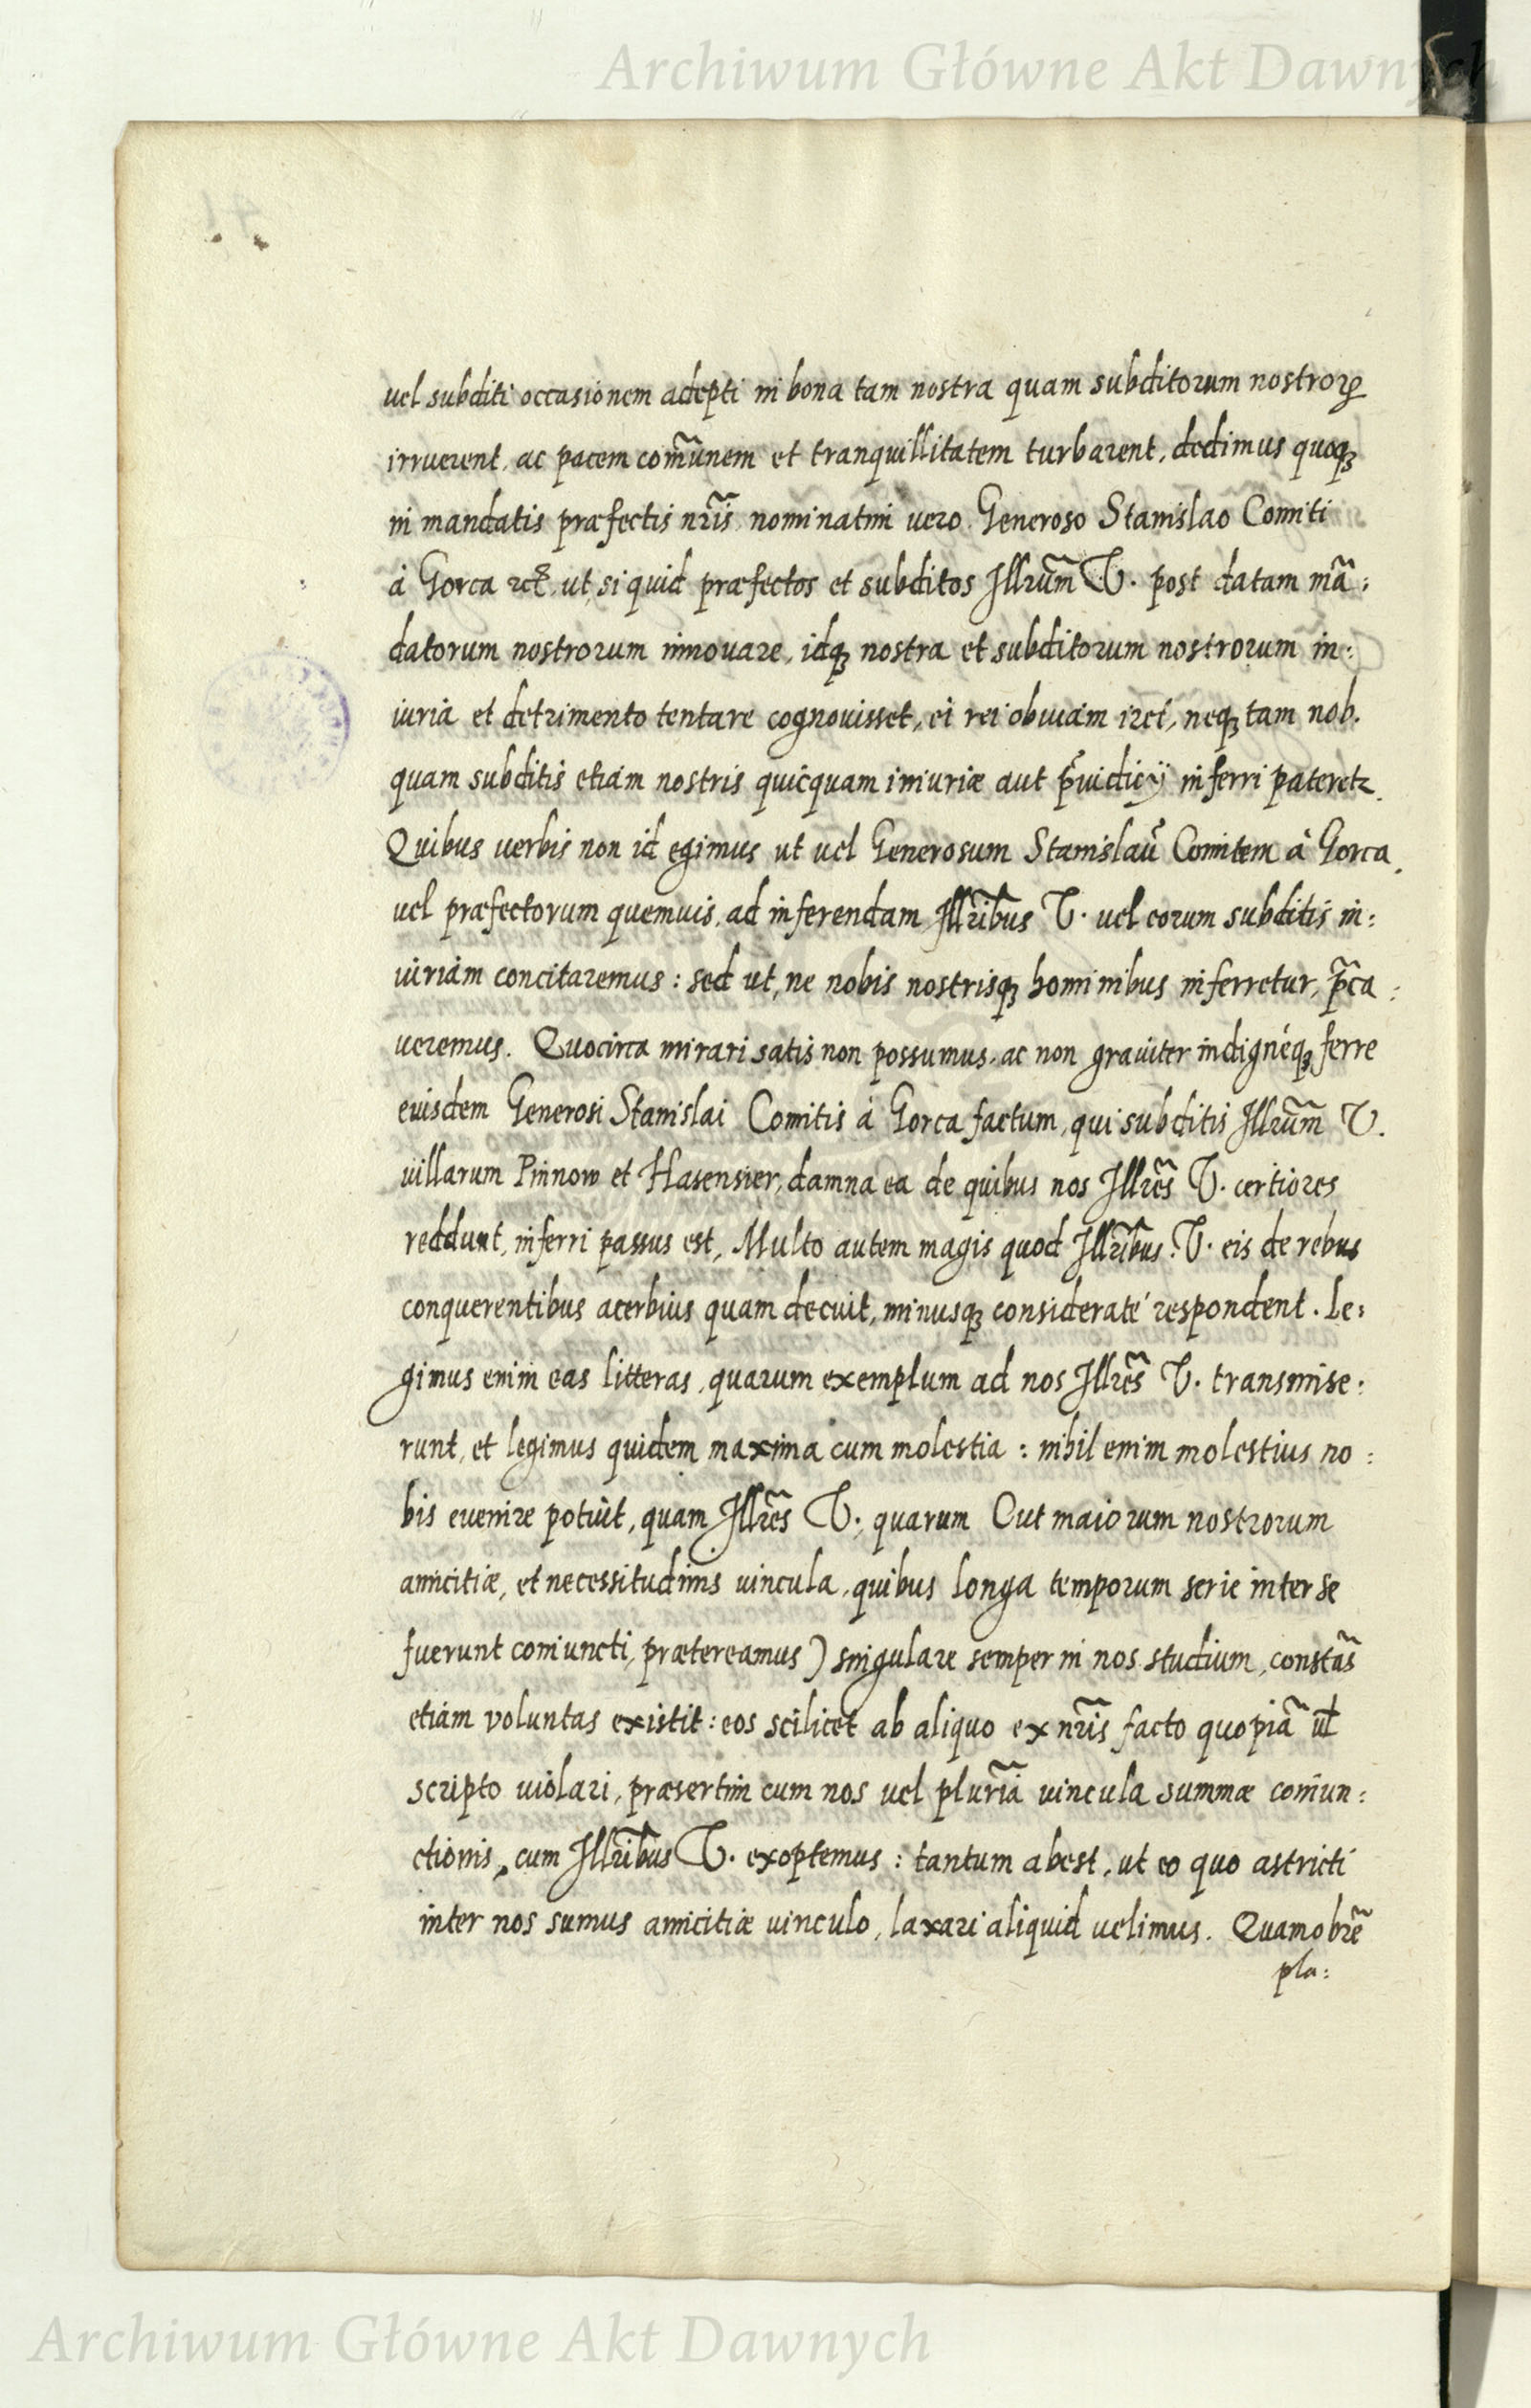 Archiwum Główne Akt Dawnych
uel subditi occasionem adepti in bona tam nostra quam subditorum nostroꝝ
irruerent, ac pacem com̃unem et tranquillitatem turbarent, dedimus quoqꝫ
in mandatis præfectis nr̃is nominatim uero Generoso Stanislao Comiti
à Gorca etc̃. ut, si quid præfectos et subditos Illrum̃ V. post datam mã:
datorum nostrorum innouare, idqꝫ nostra et subditorum nostrorum in:
iuria et detrimento tentare cognouisset, ei rei obuiam iret, neqꝫ tam nob.
quam subditis etiam nostris quicquam iniuriæ aut p̃iudicij inferri pateretr.
Quibus uerbis non id egimus ut uel Generosum Stanislaũ Comitem à Gorca,
uel præfectorum quemuis, ad inferendam Illr̃ibus V. uel eorum subditis in:
iuriam concitaremus: sed ut, ne nobis nostrisqꝫ hominibus inferretur, p̃ca:
ueremus. Quocirca mirari satis non possumus, ac non grauiter indignéqꝫ ferre
eiusdem Generosi Stanislai Comitis à Gorca factum, qui subditis Illrum̃ V.
uillarum Pinnow et Hasensier, damna ea de quibus nos Illrẽs V. certiores
reddunt, inferri passus est, Multo autem magis quod Illr̃ibus V. eis de rebus
conquerentibus acerbius quam decuit, minusqꝫ considerate respondent. Le:
gimus enim eas litteras, quarum exemplum ad nos Illrẽs V. transmise:
runt, et legimus quidem maxima cum molestia: nihil enim molestius no:
bis euenire potuit, quam Illrẽs V., quarum (ut maiorum nostrorum
amicitiæ, et necessitudinis uincula, quibus longa temporum serie inter se
fuerunt coniuncti, prætereamus) singulare semper in nos studium, constãs
etiam voluntas existit: eos scilicet ab aliquo ex nr̃is facto quopiã ul̃
scripto uiolari, præsertim cum nos uel plurĩa uincula summæ coniun:
ctionis, cum Illr̃ibus V. exoptemus: tantum abest, ut eo quo astricti
inter nos sumus amicitiæ uinculo, laxari aliquid uelimus. Quamobrẽ
pla:
Archiwum Główne Akt Dawnych